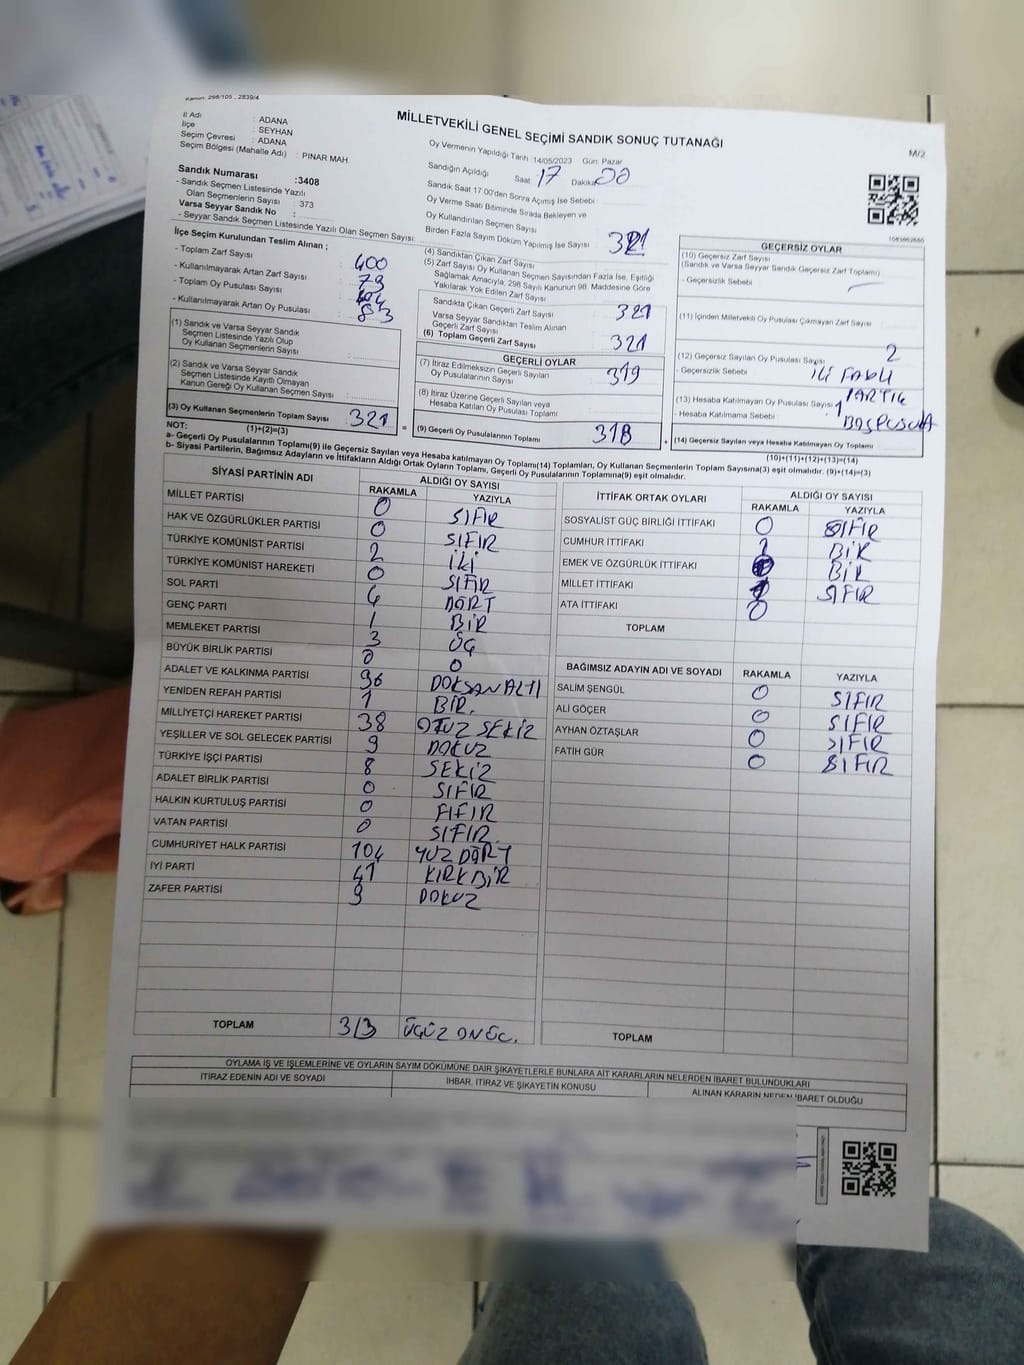 Kanun: 298/105 , 2839/4
MİLLETVEKİLİ GENEL SEÇİMİ SANDIK SONUÇ TUTANAĞI
M/2
İl Adı : ADANA
İlçe : SEYHAN
Seçim Çevresi : ADANA
Seçim Bölgesi (Mahalle Adı) : PINAR MAH
Sandık Numarası :3408
- Sandık Seçmen Listesinde Yazılı
Olan Seçmenlerin Sayısı : 373
Varsa Seyyar Sandık No :
- Seyyar Sandık Seçmen Listesinde Yazılı Olan Seçmen Sayısı:
Oy Vermenin Yapıldığı Tarih 14/05/2023 Gün: Pazar
Sandığın Açıldığı Saat 17 Dakika 00
Sandık Saat 17:00'den Sonra Açılmış İse Sebebi :
Oy Verme Saati Bitiminde Sırada Bekleyen ve
Oy Kullandırılan Seçmen Sayısı
Birden Fazla Sayım Döküm Yapılmış İse Sayısı
İlçe Seçim Kurulundan Teslim Alınan ;
- Toplam Zarf Sayısı : 400
- Kullanılmayarak Artan Zarf Sayısı : 79
- Toplam Oy Pusulası Sayısı :
- Kullanılmayarak Artan Oy Pusulası : 83
(1) Sandık ve Varsa Seyyar Sandık
Seçmen Listesinde Yazılı Olup
Oy Kullanan Seçmenlerin Sayısı
(2) Sandık ve Varsa Seyyar Sandık
Seçmen Listesinde Kayıtlı Olmayan
Kanun Gereği Oy Kullanan Seçmen Sayısı :
(3) Oy Kullanan Seçmenlerin Toplam Sayısı : 321
(1)+(2)=(3)
(4) Sandıktan Çıkan Zarf Sayısı 321
(5) Zarf Sayısı Oy Kullanan Seçmen Sayısından Fazla İse, Eşitliği
Sağlamak Amacıyla, 298 Sayılı Kanunun 98. Maddesine Göre
Yakılarak Yok Edilen Zarf Sayısı
Sandıkta Çıkan Geçerli Zarf Sayısı 321
Varsa Seyyar Sandıktan Teslim Alınan
Geçerli Zarf Sayısı
(6) Toplam Geçerli Zarf Sayısı 321
GEÇERLİ OYLAR
(7) İtiraz Edilmeksizin Geçerli Sayılan
Oy Pusulalarının Sayısı 319
(8) İtiraz Üzerine Geçerli Sayılan veya
Hesaba Katılan Oy Pusulası Toplamı
(9) Geçerli Oy Pusulalarının Toplamı 318
GEÇERSİZ OYLAR
(10) Geçersiz Zarf Sayısı
(Sandık ve Varsa Seyyar Sandık Geçersiz Zarf Toplamı)
- Geçersizlik Sebebi
(11) İçinden Milletvekili Oy Pusulası Çıkmayan Zarf Sayısı
(12) Geçersiz Sayılan Oy Pusulası Sayısı 2
- Geçersizlik Sebebi İKİ FARKLI
PARTİYE
(13) Hesaba Katılmayan Oy Pusulası Sayısı : 1
- Hesaba Katılmama Sebebi : BOŞ PUSULA
(14) Geçersiz Sayılan veya Hesaba Katılmayan Oy Toplamı
(10)+(11)+(12)+(13)=(14)
NOT:
a- Geçerli Oy Pusulalarının Toplamı(9) ile Geçersiz Sayılan veya Hesaba katılmayan Oy Toplamı(14) Toplamları, Oy Kullanan Seçmenlerin Toplam Sayısına(3) eşit olmalıdır. (9)+(14)=(3)
b- Siyasi Partilerin, Bağımsız Adayların ve İttifakların Aldığı Ortak Oyların Toplamı, Geçerli Oy Pusulalarının Toplamına(9) eşit olmalıdır.
SİYASİ PARTİNİN ADI ALDIĞI OY SAYISI
RAKAMLA YAZIYLA
MİLLET PARTİSİ 0 SIFIR
HAK VE ÖZGÜRLÜKLER PARTİSİ 0 SIFIR
TÜRKİYE KOMÜNİST PARTİSİ 2 İKİ
TÜRKİYE KOMÜNİST HAREKETİ 0 SIFIR
SOL PARTİ 4 DÖRT
GENÇ PARTİ 1 BİR
MEMLEKET PARTİSİ 3 ÜÇ
BÜYÜK BİRLİK PARTİSİ 0 0
ADALET VE KALKINMA PARTİSİ 96 DOKSAN ALTI
YENİDEN REFAH PARTİSİ 1 BİR.
MİLLİYETÇİ HAREKET PARTİSİ 38 OTUZ SEKİZ
YEŞİLLER VE SOL GELECEK PARTİSİ 9 DOKUZ
TÜRKİYE İŞÇİ PARTİSİ 8 SEKİZ
ADALET BİRLİK PARTİSİ 0 SIFIR
HALKIN KURTULUŞ PARTİSİ 0 FIFIR
VATAN PARTİSİ 0 SIFIR
CUMHURİYET HALK PARTİSİ 104 YÜZ DÖRT
İYİ PARTİ 41 KIRK BİR
ZAFER PARTİSİ 9 DOKUZ
TOPLAM 313 ÜÇÜZ ON ÜÇ.
İTTİFAK ORTAK OYLARI ALDIĞI OY SAYISI
RAKAMLA YAZIYLA
SOSYALİST GÜÇ BİRLİĞİ İTTİFAKI 0 SIFIR
CUMHUR İTTİFAKI 1 BİR
EMEK VE ÖZGÜRLÜK İTTİFAKI BİR
MİLLET İTTİFAKI SIFIR
ATA İTTİFAKI 0
TOPLAM
BAĞIMSIZ ADAYIN ADI VE SOYADI RAKAMLA YAZIYLA
SALİM ŞENGÜL 0 SIFIR
ALİ GÖÇER 0 SIFIR
AYHAN ÖZTAŞLAR 0 SIFIR
FATİH GÜR 0 SIFIR
TOPLAM
OYLAMA İŞ VE İŞLEMLERİNE VE OYLARIN SAYIM DÖKÜMÜNE DAİR ŞİKAYETLERLE BUNLARA AİT KARARLARIN NELERDEN İBARET BULUNDUKLARI
İTİRAZ EDENİN ADI VE SOYADI İHBAR, İTİRAZ VE ŞİKAYETİN KONUSU ALINAN KARARIN NEDEN İBARET OLDUĞU